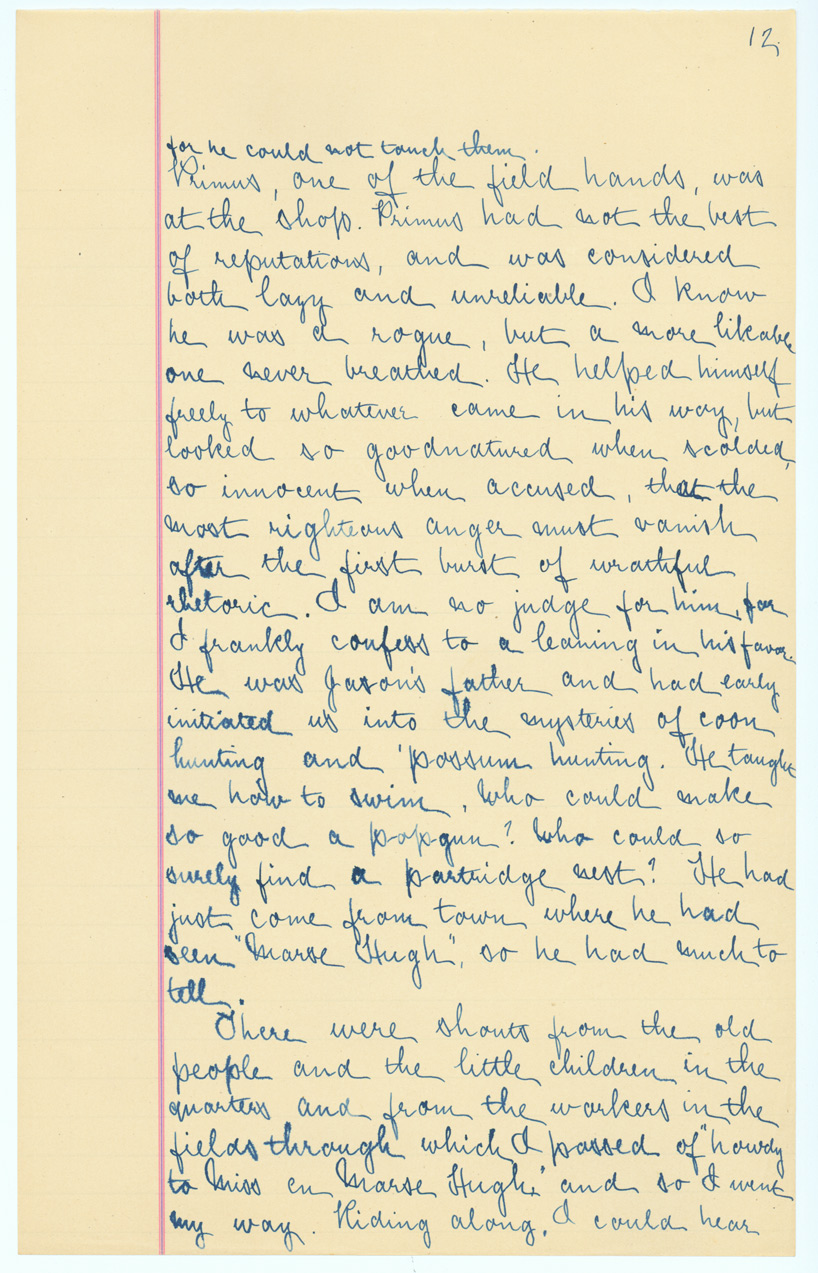 12,
for he could not touch them.
Primus, one of the field hands, was
at the shop. Primus had not the best
of reputations, and was considered
both lazy and unreliable. I know
he was a rogue, but a more likable
one never breathed. He helped himself
freely to whatever came in his way, but
looked so goodnatured when scolded,
so innocent when accused, that the
most righteous anger must vanish
after the first burst of wrathful
rhetoric. I am no judge for him, for
I frankly confess to a leaning in his favor.
He was Jason's father and had early
initiated us into the mysteries of coon
hunting and 'possum hunting. He taught
me how to swim. Who could make
so good a popgun? Who could so
surely find a partridge nest? He had
just come from town where he had
seen "Marse Hugh", so he had much to
tell.
There were shouts from the old
people and the little children in the
quarters and from the workers in the
fields through which I passed of "howdy
to Miss en Marse Hugh," and so I went
my way. Riding along, I could hear